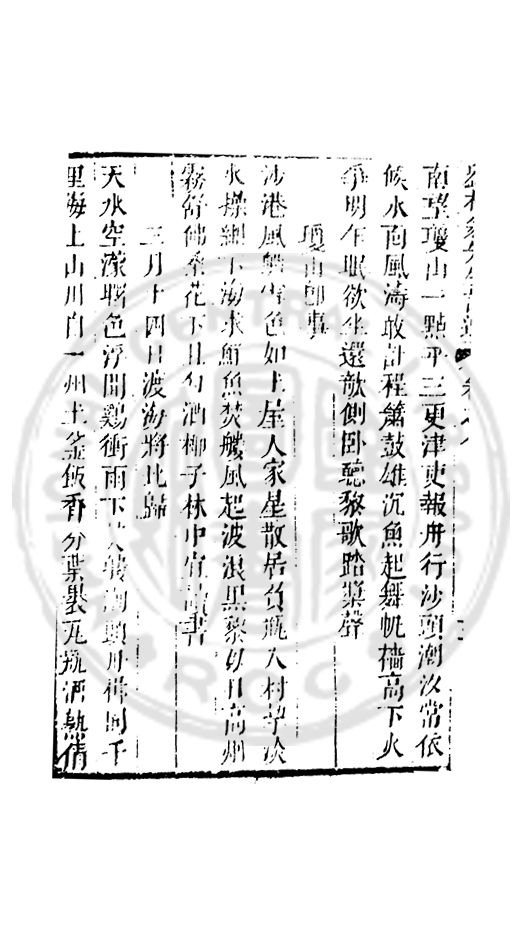 南望瓊山一點平三更津吏報舟行沙頭潮汝常依
候水面風濤敢計程簫鼓雄沉魚起舞帆檣高下火
爭明午眠欲坐還敵側臥聽黎歌踏槳聲
瓊山即事
沙港風 色如土屋人家星散居負瓶入村 淡
水操網下海求鮮魚焚 風起波浪黑黎母日高烟
霧舒佛桑花下且勾酒椰子林中宜讀書
三月十四日渡海將北歸
天水空濛曙色浮聞鷄衝雨下 潮頭舟 回千
里海上山川自一州土釜飯香分葉裹瓦瓶酒熟倩